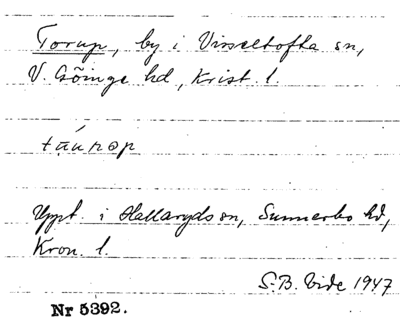 Torup, by i Visseltofta sn,
V. Göinge hd, Krist. l.
Uppt. i Hallaryds sn, Sunnerbo hd,
Kron. l.
S.B. Vide 1947
Nr 5392.